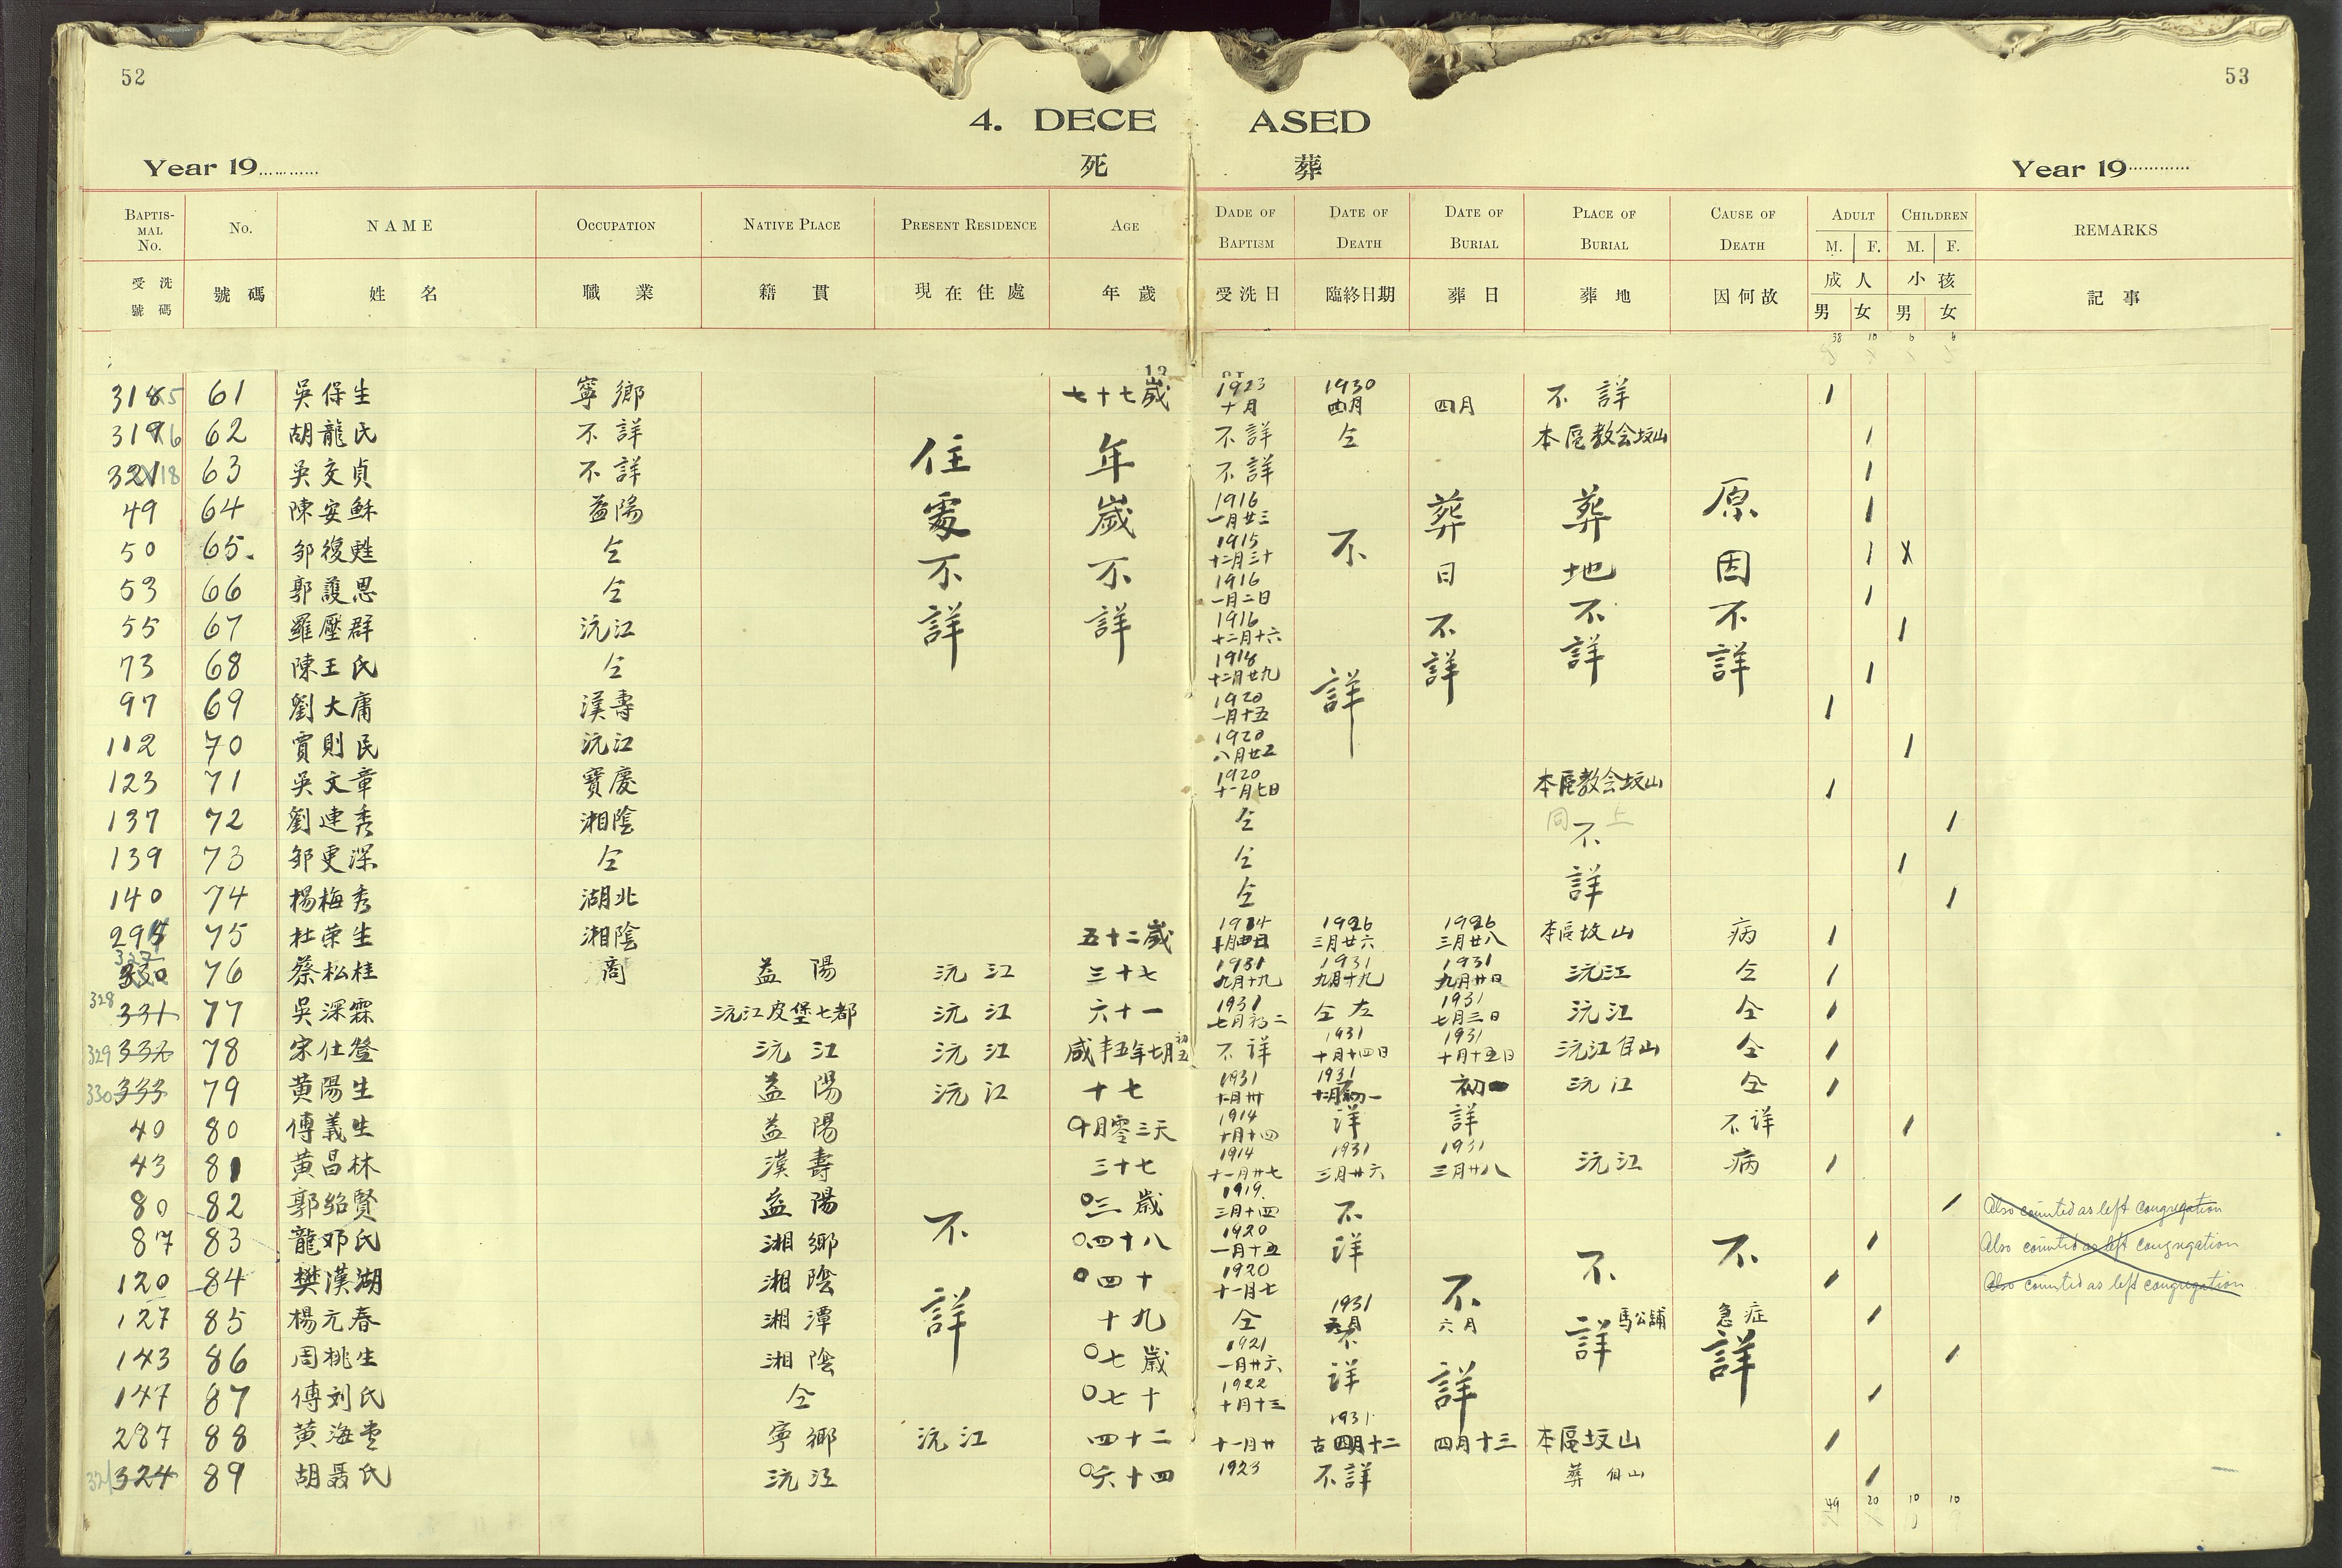 52
53
4. DECEASED
Year 19............ 死 葬 Year 19............
BAPTISMAL No. No. NAME OCCUPATION NATIVE PLACE PRESENT RESIDENCE AGE DADE OF BAPTISM DATE OF DEATH DATE OF BURIAL PLACE OF BURIAL CAUSE OF DEATH ADULT M. F. CHILDREN M. F. REMARKS
受洗號碼 號碼 姓名 職業 籍貫 現在住處 年歲 受洗日 臨終日期 葬日 葬地 因何故 成人 男 女 小孩 男 女 記事
38 10 6 6
315 61 吳保生 寧鄉 七十七歲 1923 十月 1930 四月 四月 不詳 1
316 62 胡龍氏 不詳 不詳 仝 本區教会坟山 1
318 63 吳交貞 不詳 不詳 1
49 64 陳安穌 益陽 1916 一月廿三 1
50 65. 邹復甦 仝 1915 十二月三十 1 X
53 66 郭護恩 仝 1916 一月二日 1
55 67 羅壓群 沅江 1916 十二月十六 1
73 68 陳王氏 仝 1918 十二月廿九 1
97 69 劉大庸 漢壽 1920 一月十五 1
112 70 賈則民 沅江 1920 八月廿五 1
住處不詳 年歲不詳 不詳 葬日不詳 葬地不詳 原因不詳
123 71 吳文章 寶慶 1920 十一月七日 本區教会坟山 1
137 72 劉連秀 湘陰 仝 同上 1
139 73 邹更深 仝 仝 不詳 1
140 74 楊梅秀 湖北 仝 1
294 75 杜荣生 湘陰 五十二歲 1914 1926 三月廿六 1926 三月廿八 本區坟山 病 1
327 330 76 蔡松桂 商 益陽 沅江 三十七 1931 九月十九 1931 九月十九 1931 九月廿日 沅江 仝 1
328 331 77 吳深霖 沅江皮堡七都 沅江 六十一 1931 七月初二 仝左 1931 七月三日 沅江 仝 1
329 332 78 宋仕登 沅江 沅江 咸丰五年七月初五 不詳 1931 十月十四日 1931 十月十五日 沅江自山 仝 1
330 333 79 黃陽生 益陽 沅江 十七 1931 1931 初一 初一 沅江 仝 1
40 80 傅義生 益陽 9月零三天 1914 十月十四 不詳 詳 不详 1
43 81 黃昌林 漢壽 三十七 1914 十一月廿七 1931 三月廿六 1931 三月廿八 沅江 病 1
80 82 郭紹賢 益陽 0三歲 1919. 三月十四 不 1 Also counted as left congregation
87 83 龍邓氏 湘鄉 0四十八 1920 一月十五 详 1 Also counted as left congregation
120 84 樊漢湖 湘陰 0四十 1920 十一月七 1 Also counted as left congregation
127 85 楊元春 湘潭 十九 仝 1931 五月 六月 馬公舖 急症 1
143 86 周桃生 湘陰 0七歲 1921 一月廿六 不 1
147 87 傅刘氏 仝 0七十 1922 十月十三 详 1
不詳 不詳 不詳 不詳
287 88 黃海雲 寧鄉 沅江 四十二 十一月廿 1931 古四月十二 四月十三 本區坟山 1
321 324 89 胡聶氏 沅江 0六十四 1923 不詳 葬自山 1
49 20 10 10